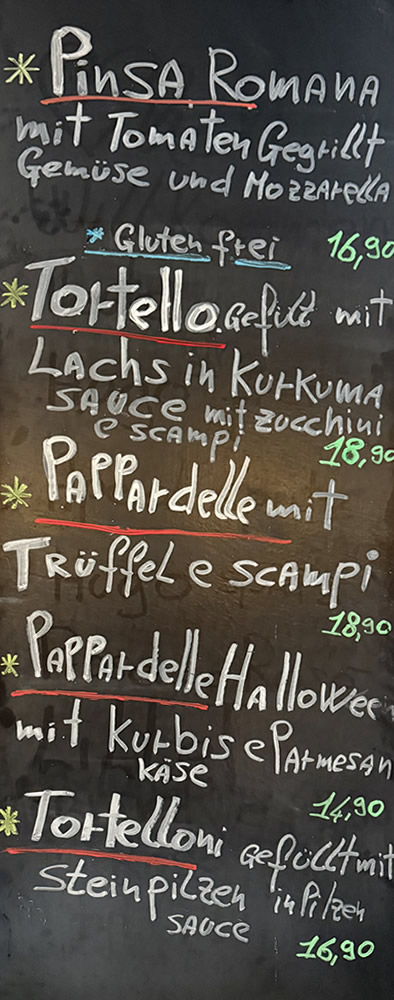 * Pinsa Romana
mit Tomaten Gegrillt
Gemüse und Mozzarella
* Gluten frei 16,90
* Tortello Gefült mit
Lachs in Kurkuma
Sauce mit zucchini
e scampi
18,90
* Pappardelle mit
Trüffel e scampi
18,90
* Pappardelle Halloween
mit Kurbis e Parmesan
Käse
14,90
* Tortelloni Gefüllt mit
Steinpilzen in Pilzen
Sauce
16,90